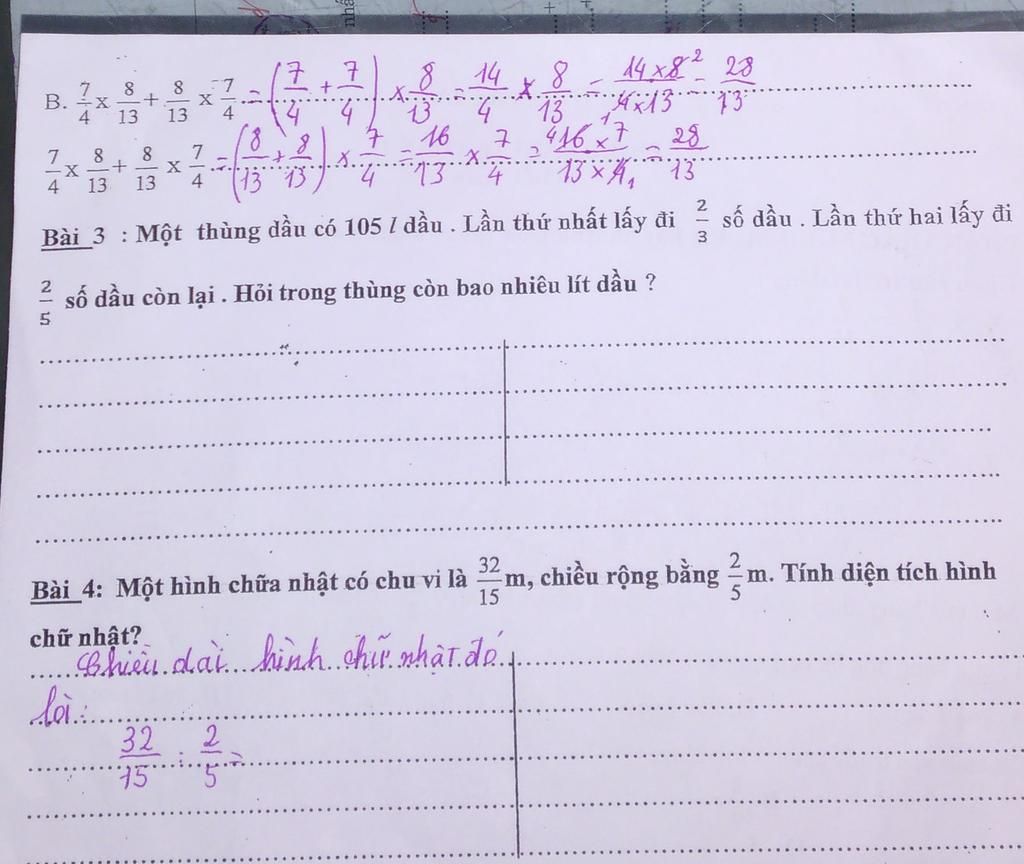 B. 7/4 x 8/13 + 8/13 x 7/4 = (7/4 + 7/4) x 8/13 = 14/4 x 8/13 = 14 x 8 2 / 1 4 x 13 = 28/13
7/4 x 8/13 + 8/13 x 7/4 = (8/13 + 8/13) x 7/4 = 16/13 x 7/4 = 4 16 x 7 / 13 x 4 1 = 28/13
Bài 3 : Một thùng dầu có 105 l dầu . Lần thứ nhất lấy đi 2/3 số dầu . Lần thứ hai lấy đi
2/5 số dầu còn lại . Hỏi trong thùng còn bao nhiêu lít dầu ?
Bài 4: Một hình chữa nhật có chu vi là 32/15 m, chiều rộng bằng 2/5 m. Tính diện tích hình
chữ nhật?
Chiều dài hình chữ nhật đó
là:
32/15 : 2/5 =